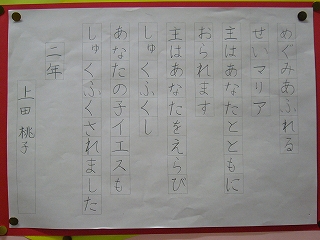 めぐみあふれる
せいマリア
主はあなたとともに
おられます
主はあなたをえらび
しゅくふくし
あなたの子イエスも
しゅくふくされました
二年
上田桃子